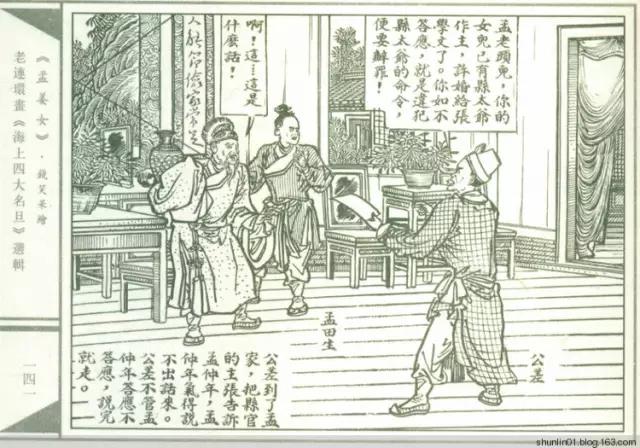 孟老頭兒，你的
女兒已有縣太爺
作主，許婚給張
學文了。你如不
答應，就是違犯
縣太爺的命令，
便要辦罪！
啊！這…這是
什麼話！
孟田生
公差
公差到了孟
家，把縣官
的主張告訴
孟仲年，孟
仲年氣得說
不出話來。
公差不管孟
仲年答應不
答應，說完
就走。
《孟姜女》·錢笑呆繪
老連環畫《海上四大名旦》選輯
一四一
shunlin01.blog.163.com